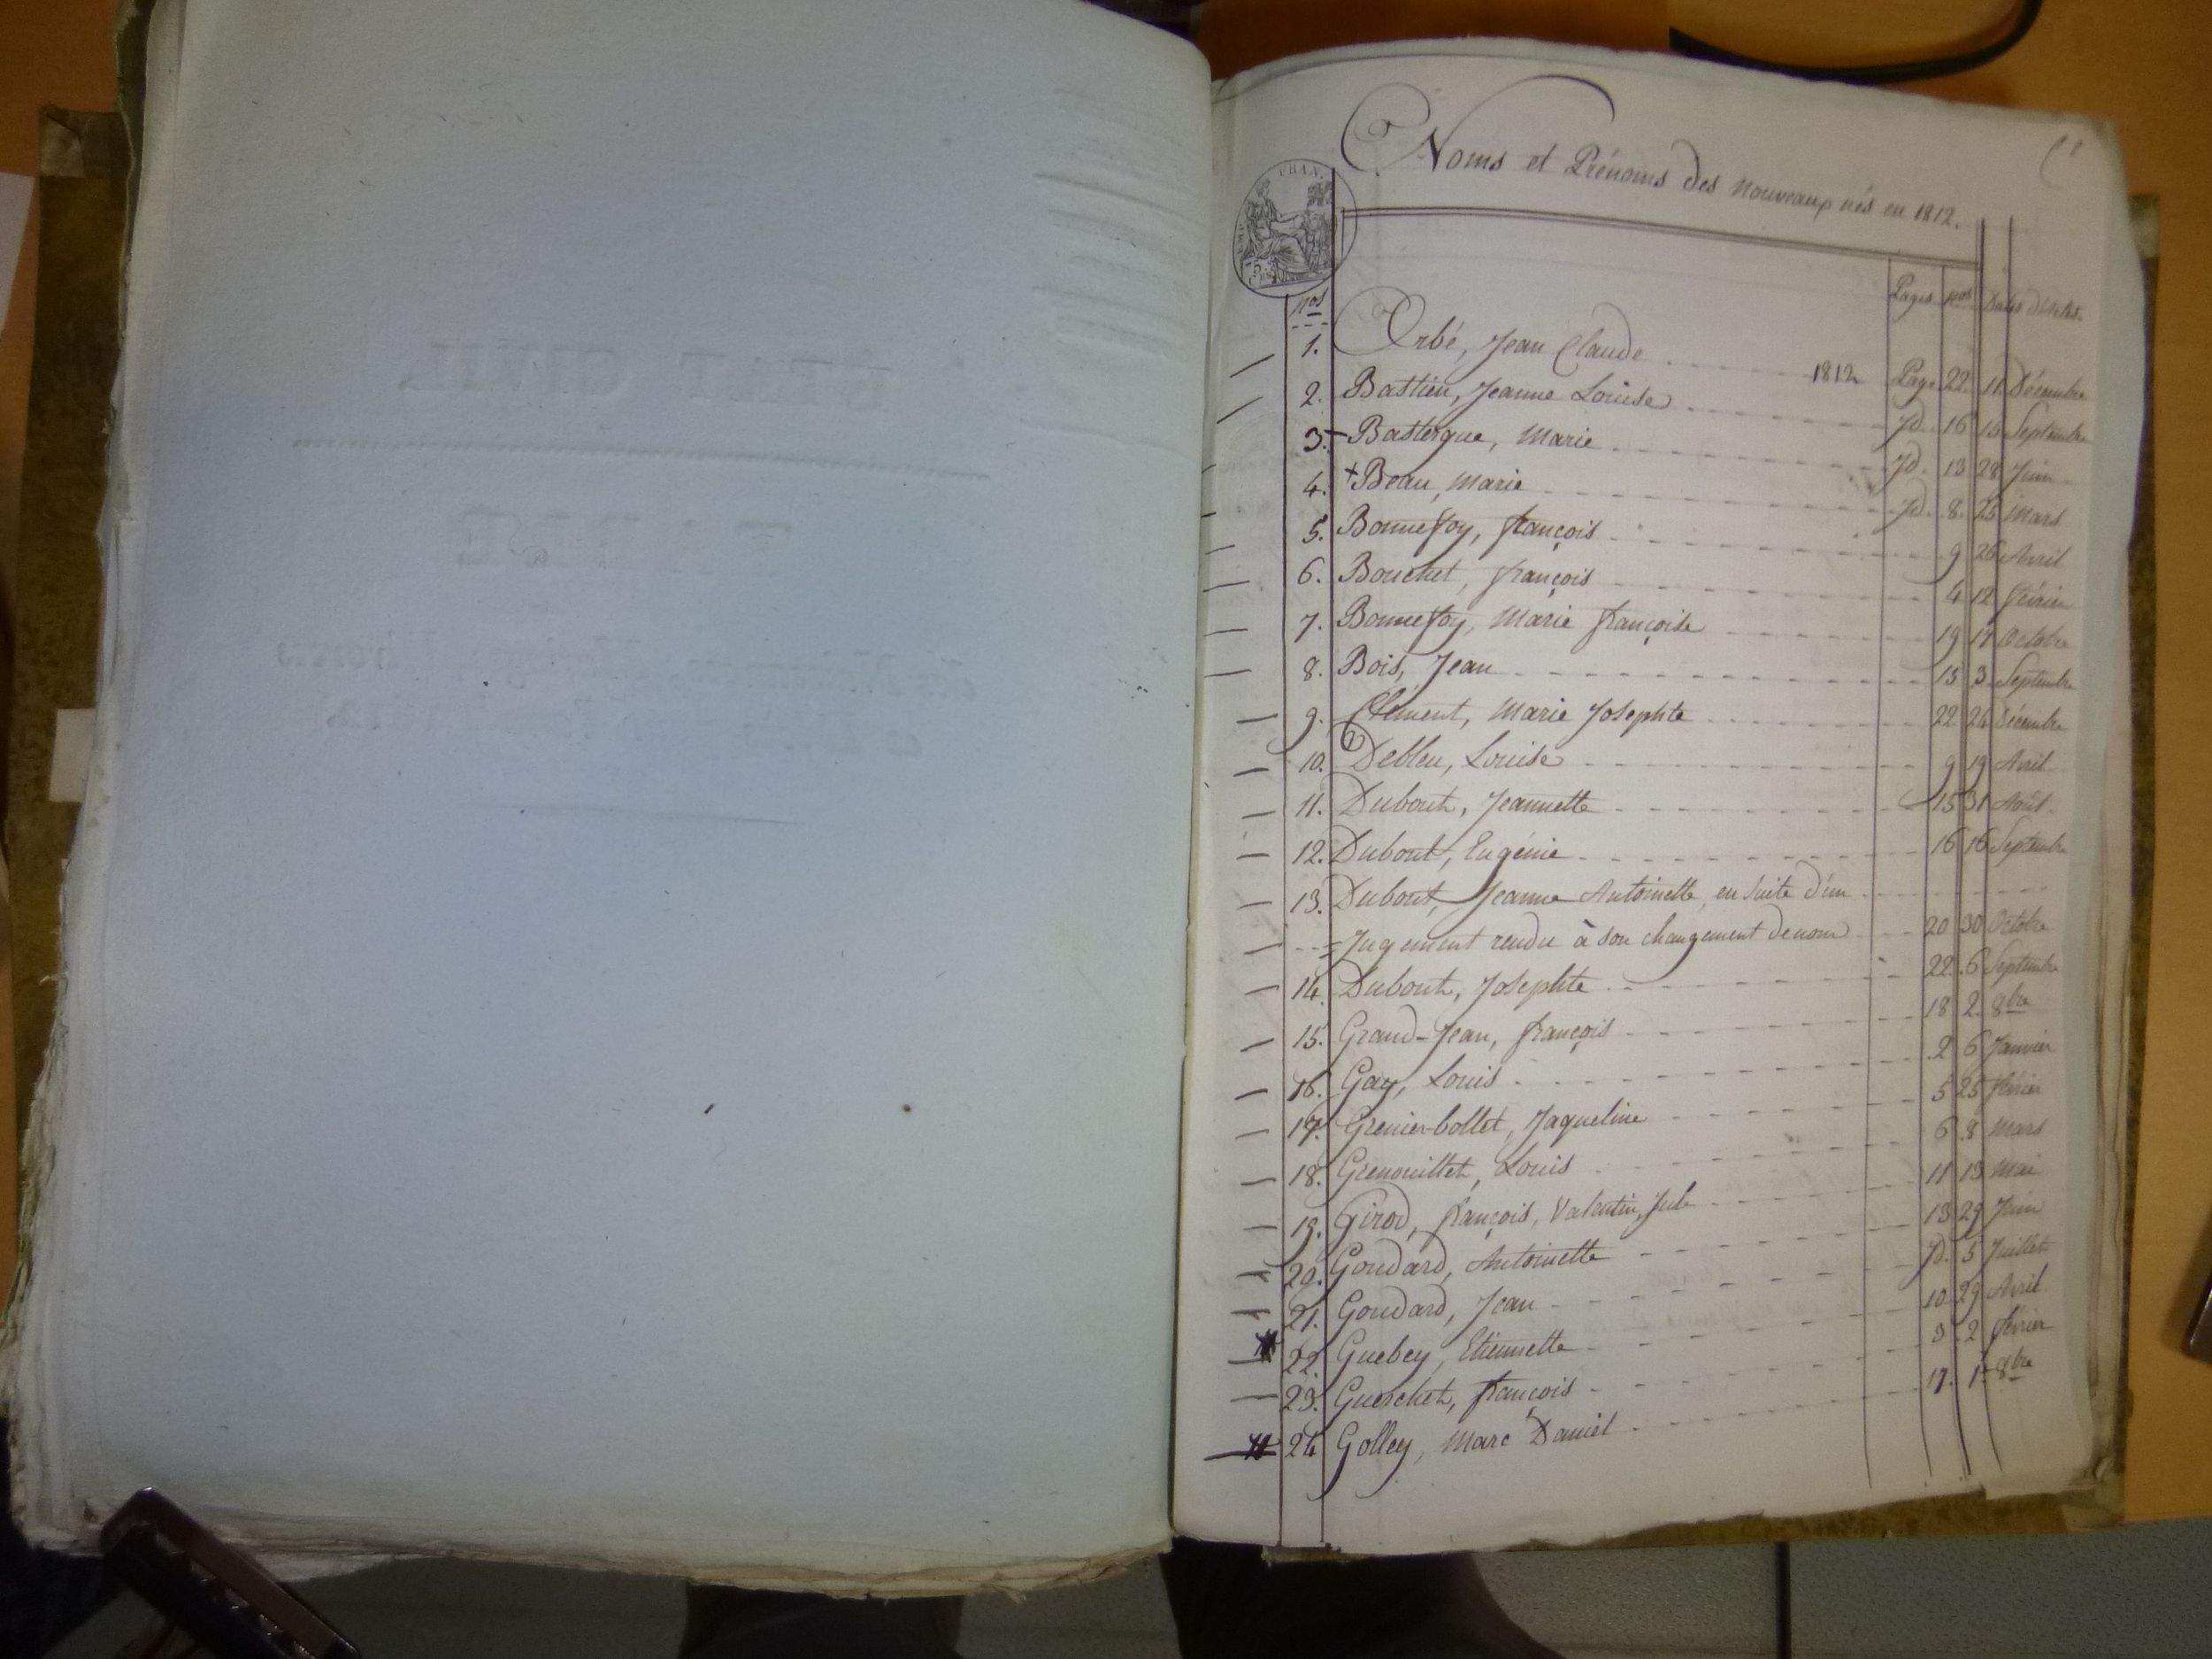 Noms et Prénoms des nouveaux nés en 1812.
Nos Pages Nos Dates d'actes
1. Orbé, Jean Claude 1812 Page 22 11 Décembre
2. Bastien, Jeanne Louise Id. 16 15 Septembre
3. Bastergue, Marie Id. 13 28 Juin
4. + Beau, Marie Id. 8. 25 Mars
5. Bonnefoy, françois 9 26 Avril
6. Bouchet, françois 4 12 février
7. Bonnefoy, Marie françoise 19 17 Octobre
8. Bois, Jean 15 3 Septembre
9. Clément, Marie Josephte 22 24 Décembre
10. Debleu, Louise 9 19 Avril
11. Dubout, Jeannette 15 31 Août
12. Dubout, Eugénie 16 16 Septembre
13. Dubout, Jeanne Antoinette, en suite d'un
Jugement rendu à son changement de nom 20 30 Octobre
14. Dubout, Josephte 22 6 Septembre
15. Grand-Jean, françois 18 2 8bre
16. Gay, Louis 2 6 Janvier
17. Grenier-bollet, Jaqueline 5 25 février
18. Grenouillet, Louis 6 8 Mars
19. Girod, françois, Valentin, Jule 11 13 Mai
20. Goudard, Antoinette 13 29 Juin
21. Goudard, Jean Id. 5 Juillet
22. Guebey, Etiennette 10 29 Avril
23. Guerchet, françois 3 2 février
24 Golley, Marc Daniel 17. 1 8bre